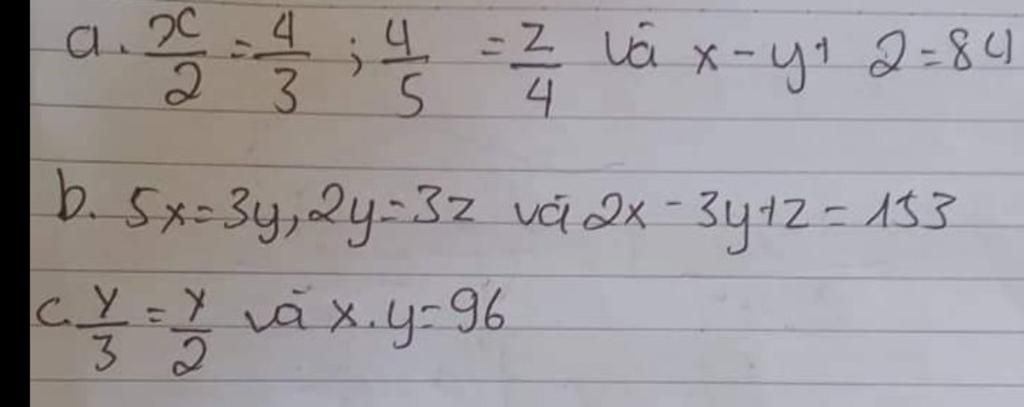 a. x/2 = 4/3 ; 4/5 = z/4 và x - y + 2 = 84
b. 5x = 3y, 2y = 3z và 2x - 3y + z = 153
c. y/3 = y/2 và x.y = 96